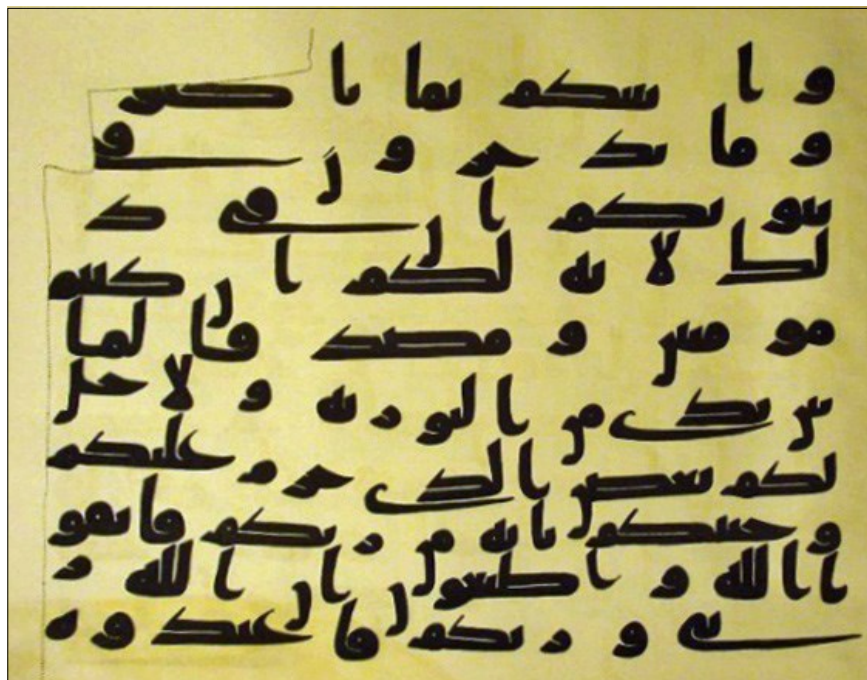 وانبيكم بما تاكلون
وما تدخرون في
بيوتكم ان في ذ
لك لاية لكم ان كنتم
مومنين ومصدقا لما
بين يدي من التورية ولاحل
لكم بعض الذي حرم عليكم
وجيتكم باية من ربكم فاتقو
ا الله واطيعون ان الله ر
بي وربكم فاعبدوه